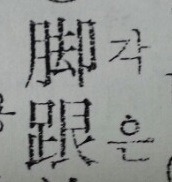 脚 각
跟 은